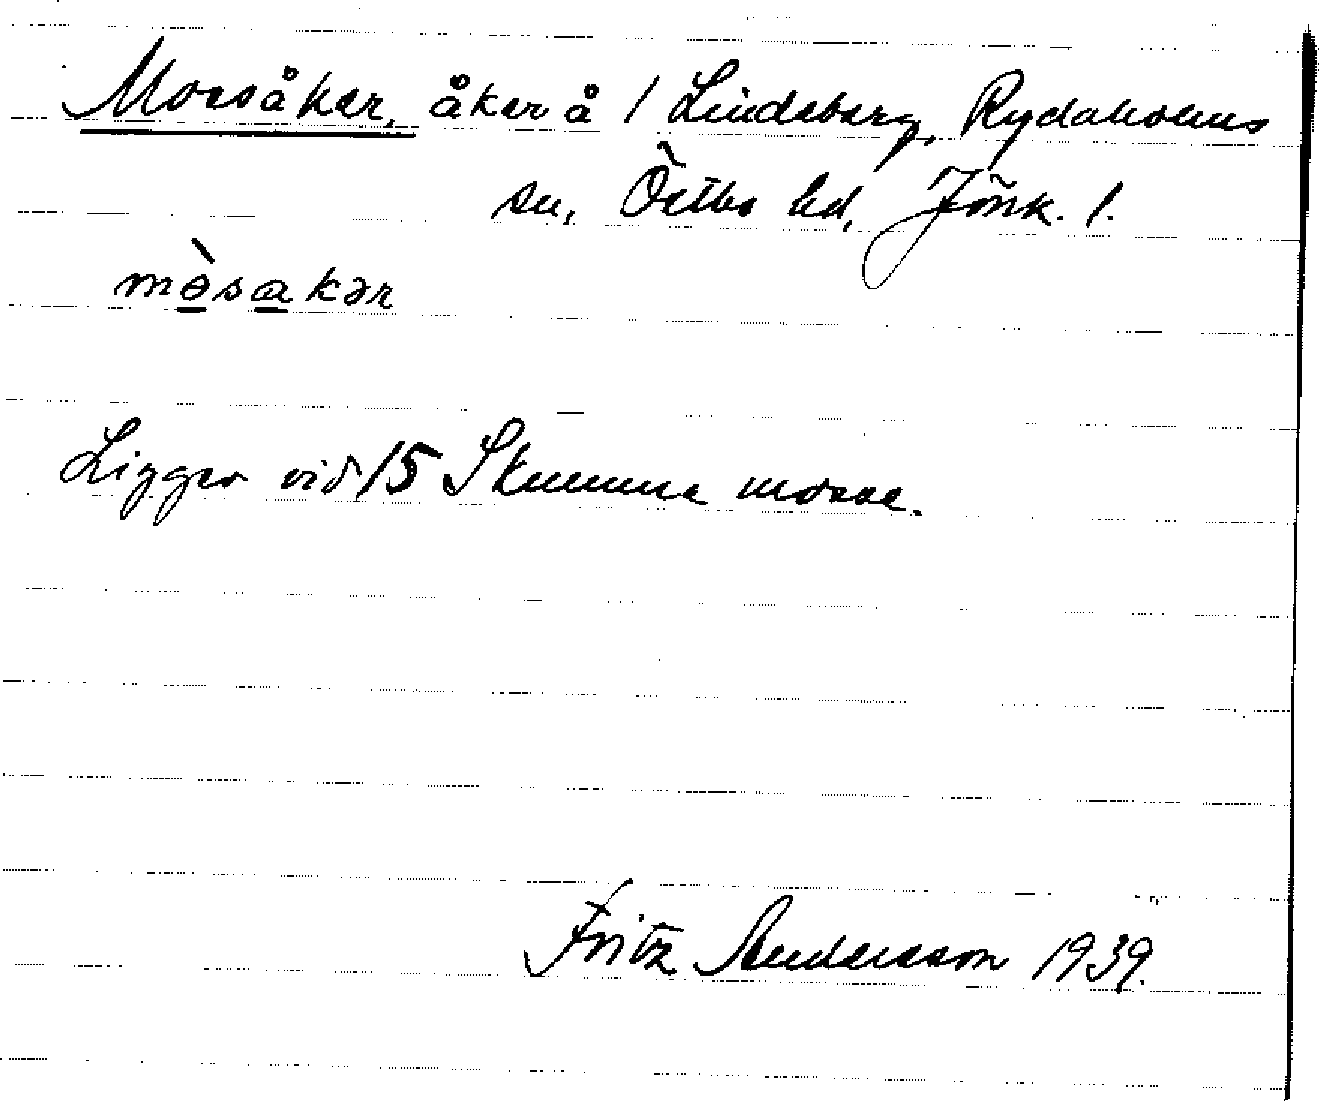 Mossåker, åker å 1 Lindeberg, Rydaholms
sn, Östbo hd, Jönk. l.
mòsakər
Ligger vid 15 Skumma mosse.
Fritz Andersson 1939.